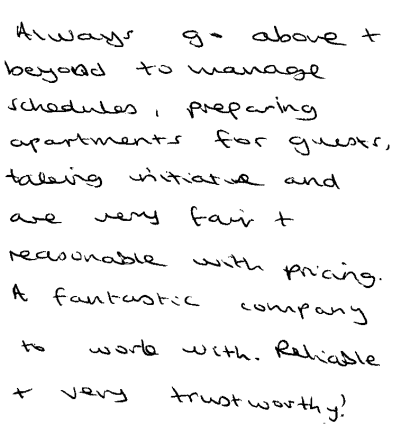 Always go above +
beyond to manage
schedules, preparing
apartments for guests,
taking initiative and
are very fair +
reasonable with pricing.
A fantastic company
to work with. Reliable
+ very trustworthy!